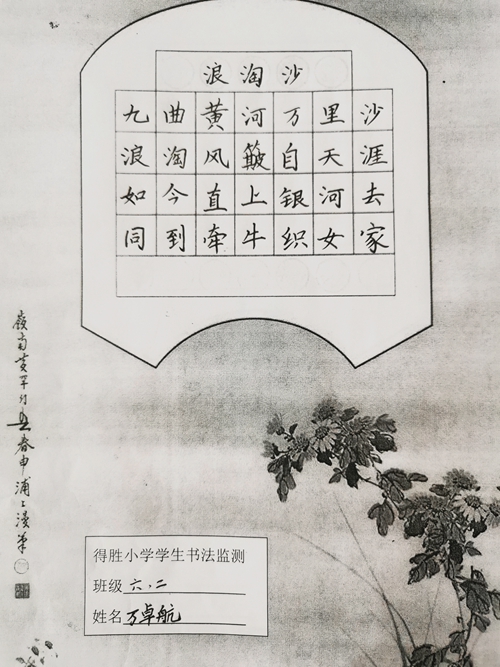 浪淘沙
九曲黄河万里沙
浪淘风簸自天涯
如今直上银河去
同到牵牛织女家
得胜小学学生书法监测
班级 六.二
姓名 万卓航